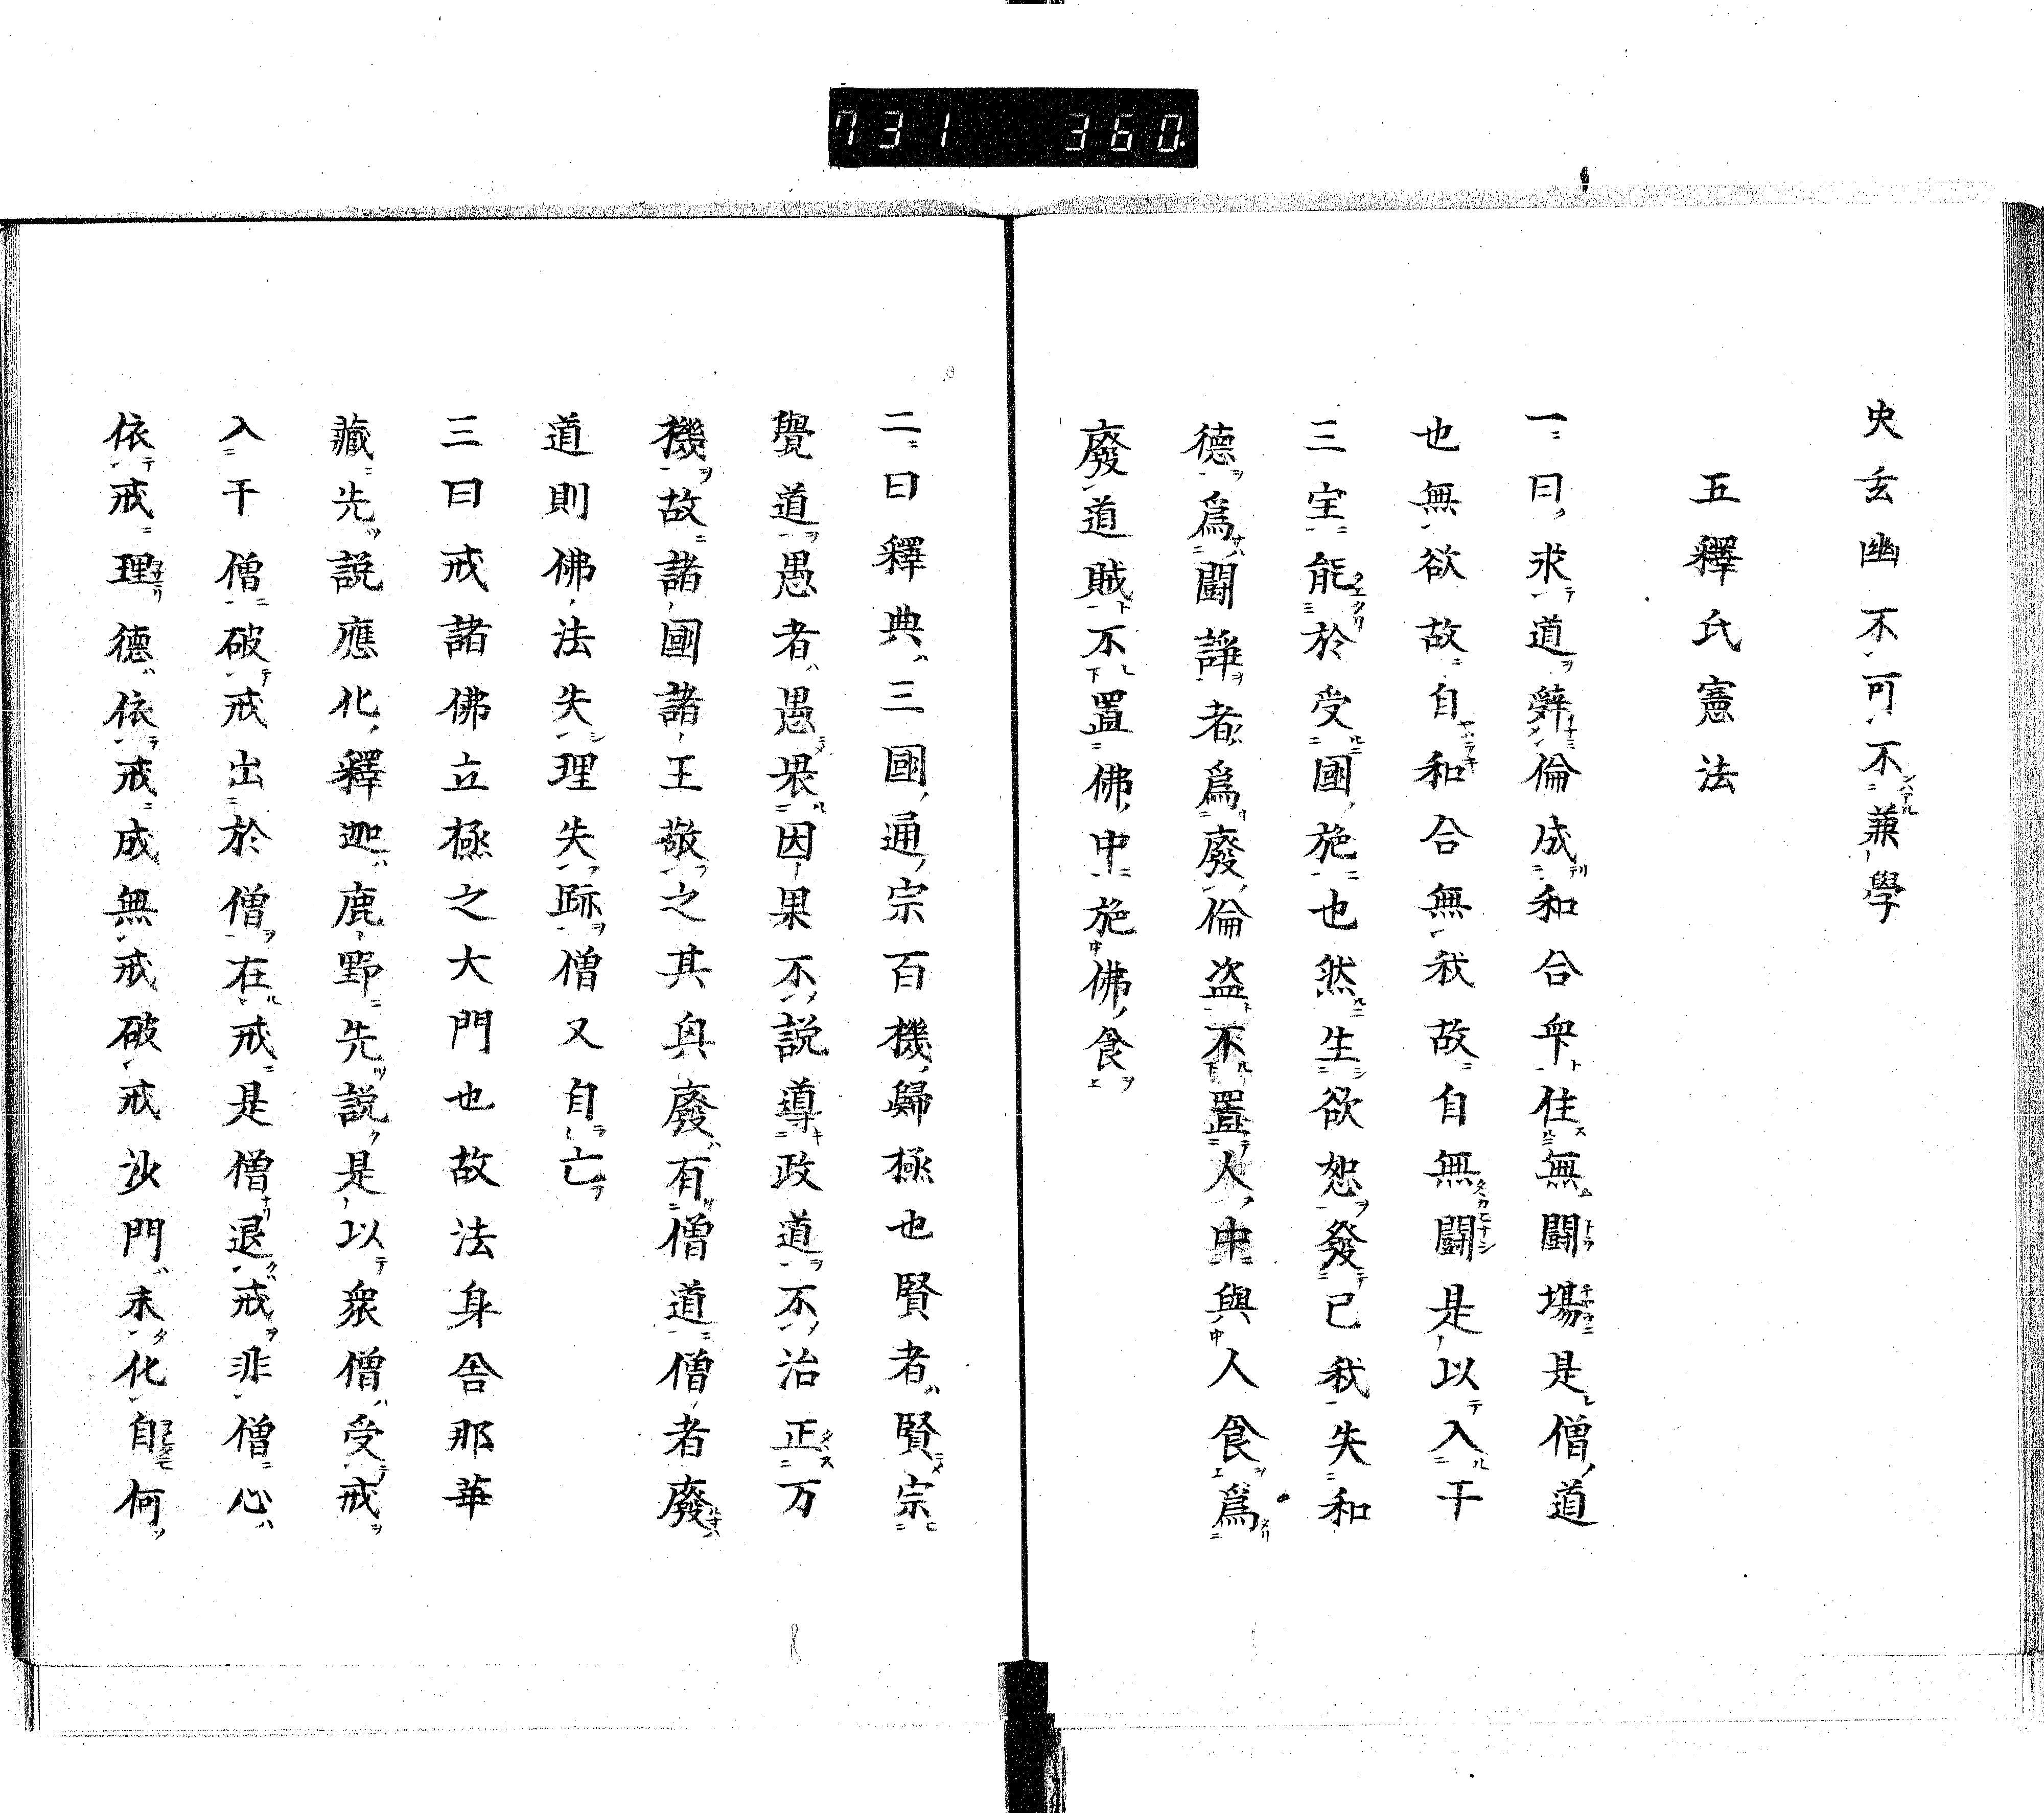 731 360
史玄幽不可不兼學
五釋氏憲法
一曰求道辭倫成和合卆住無鬪場是僧道
也無欲故自和合無我故自無鬪是以入于
三宝能於受國施也然生欲恕發己我失和
德爲鬪諍者爲廢倫盗不置人中與人食爲
廢道賊不置佛中施佛食
二曰釋典三國通宗百機歸極也賢者賢宗
覺道愚者愚畏因果不説導政道不治正万
機故諸國諸王敬之其與廢有僧道僧者廢
道則佛法失理失跡僧又自亡
三曰戒諸佛立極之大門也故法身舎那華
藏先説應化釋迦鹿野先説是以衆僧受戒
入于僧破戒出於僧在戒是僧退戒非僧心
依戒理德依戒成無戒破戒沙門未化自何